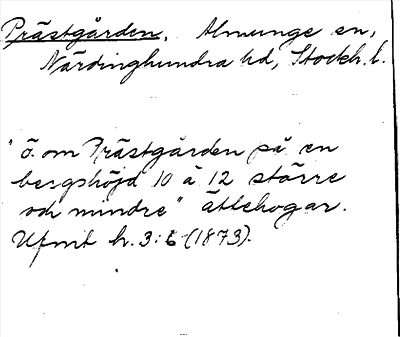 Prästgården, Almunge sn,
Närdinghundra hd, Stockh. l.
"ö. om Prästgården på en
bergshöjd 10 à 12 större
och mindre" ättehögar.
Ufmt h. 3:6 (1873).